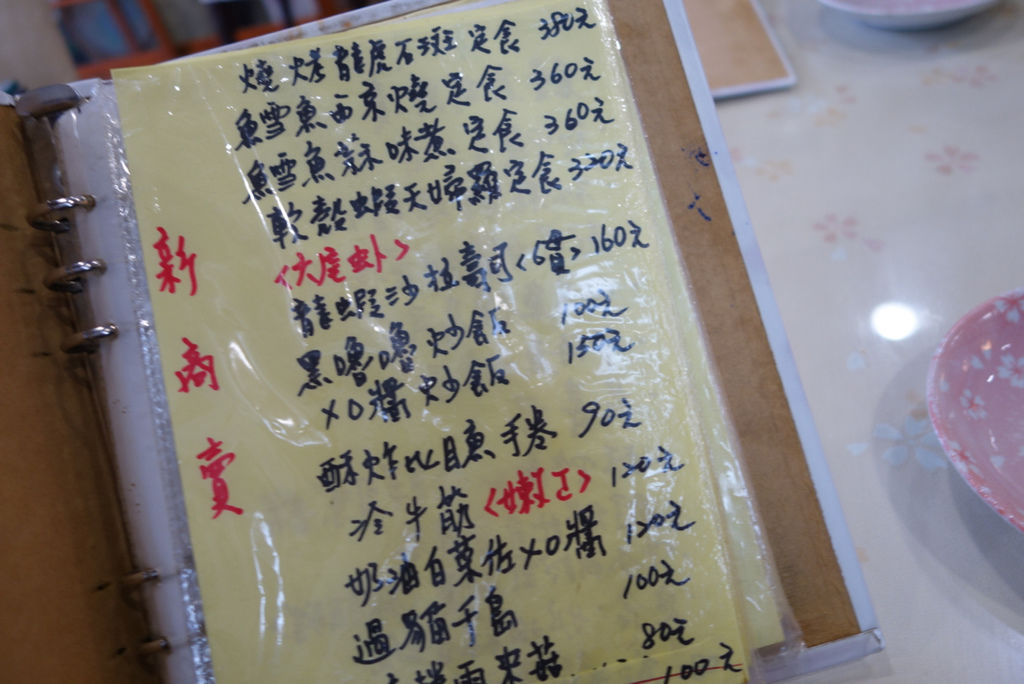 燒烤龍虎石斑定食 380元
鱈魚西京燒定食 360元
鱈魚蒜味煮定食 360元
軟殼蝦天婦羅定食 320元
<大尾ㄟ>
龍蝦沙拉壽司<6貫> 160元
黑嚕嚕炒飯 100元
XO醬炒飯 150元
酥炸比目魚手卷 90元
冷牛筋<嫩ㄟ> 120元
奶油白菜佐XO醬 120元
過貓千島 100元
雨來菇 80元
100元
新商賣